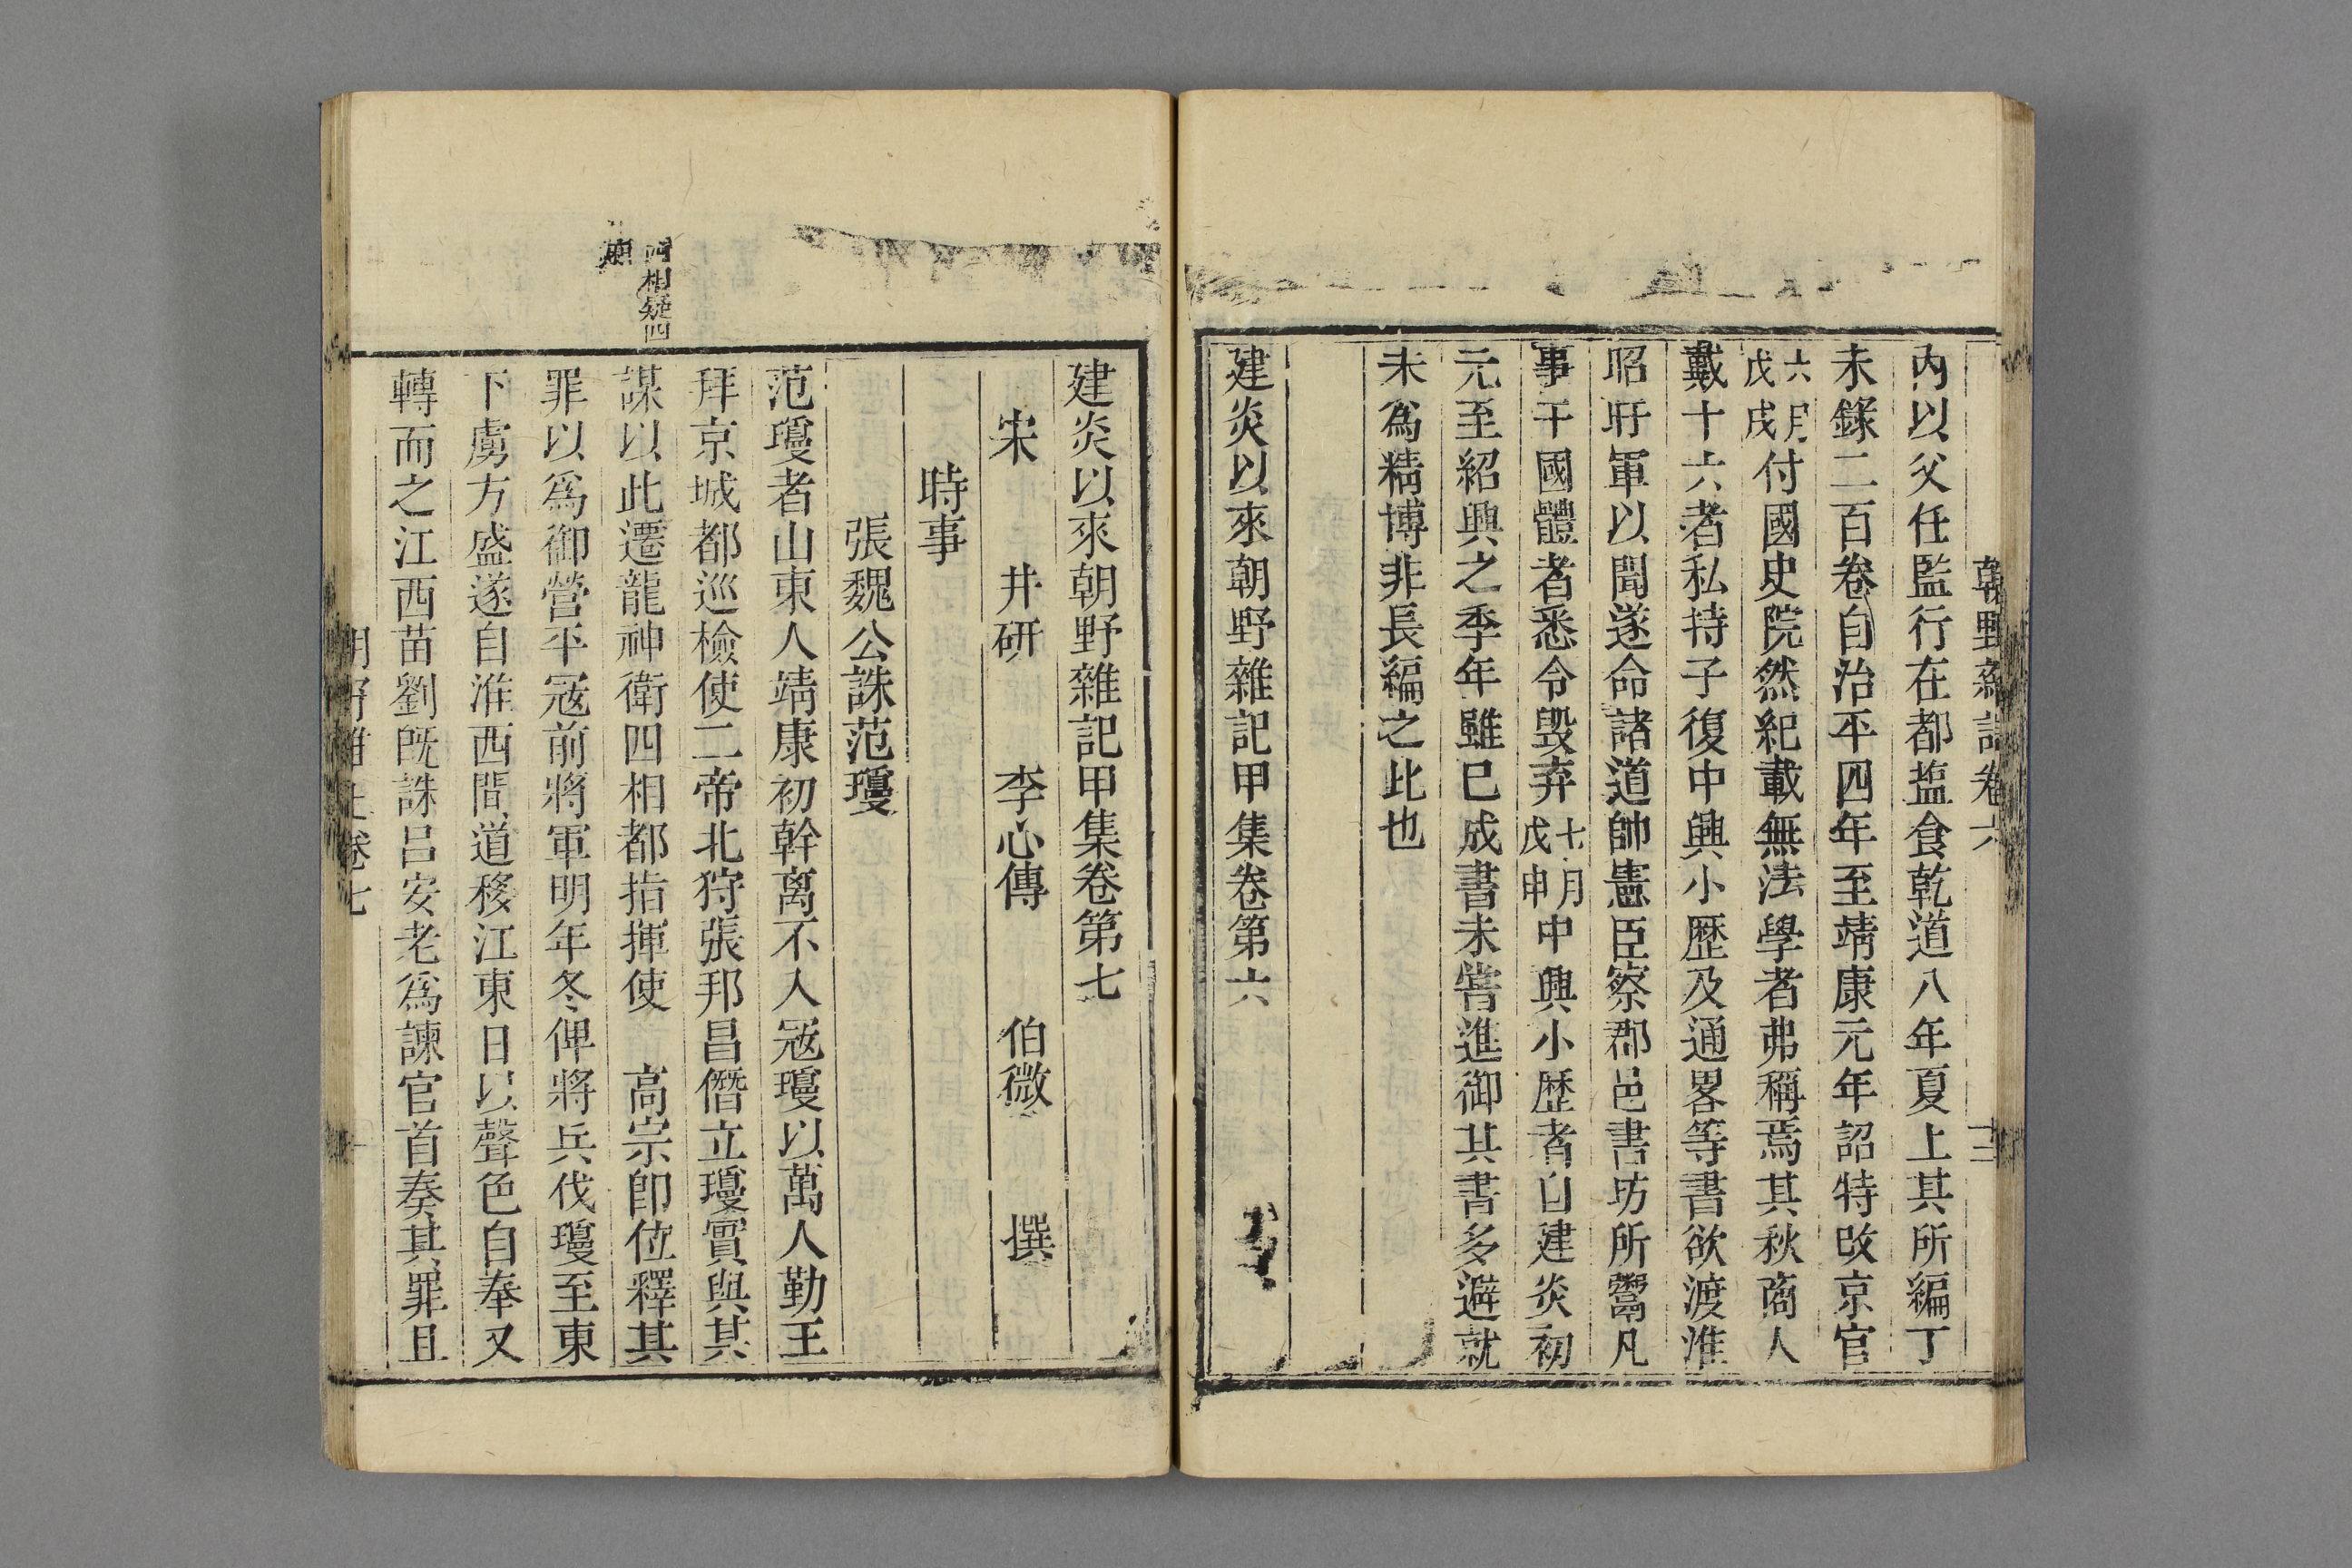 朝野雜記卷六
內以父任監行在都塩食乾道八年夏上其所編丁
未錄二百卷自治平四年至靖康元年詔特改京官
六月
戊戌付國史院然紀載無法學者弗稱焉其秋商人
戴十六者私持子復中興小歷及通畧等書欲渡淮
昭盱軍以聞遂命諸道帥憲臣察郡邑書坊所鬻凡
事干國體者悉令毀弃七月
戊申中興小歷者自建炎初
元至紹興之季年雖已成書未嘗進御其書多避就
未為精博非長編之比也
建炎以來朝野雜記甲集卷第六
建炎以來朝野雜記甲集卷第七
宋 井研 李心傳 伯微 撰
時事
張魏公誅范瓊
范瓊者山東人靖康初幹离不入寇瓊以萬人勤王
拜京城都巡檢使二帝北狩張邦昌僭立瓊實與其
謀以此遷龍神衛四相都指揮使 高宗即位釋其
罪以為御營平寇前將軍明年冬俾將兵伐瓊至東
下虜方盛遂自淮西間道移江東日以聲色自奉又
轉而之江西苗劉既誅呂安老為諫官首奏其罪且
四相疑四
卷七